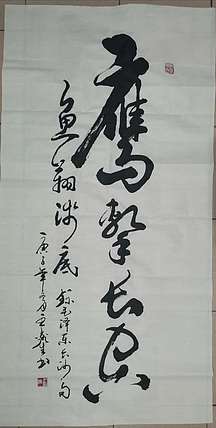 鹰击长空
鱼翔浅底
录毛泽东长沙句
庚子年